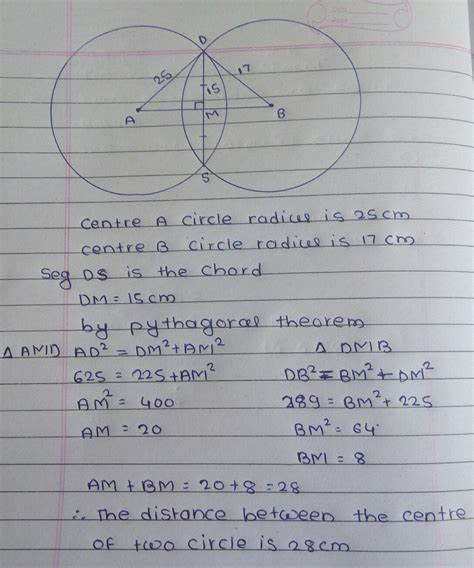 D
25
17
15
A
M
B
S
centre A circle radius is 25cm
centre B circle radius is 17 cm
seg DS is the chord
DM = 15cm
by pythagoras theorem
Δ AMD AD² = DM² + AM² Δ DMB
625 = 225 + AM² DB² = BM² + DM²
AM² = 400 289 = BM² + 225
AM = 20 BM² = 64
BM = 8
AM + BM = 20 + 8 = 28
∴ The distance between the centre
of two circle is 28cm